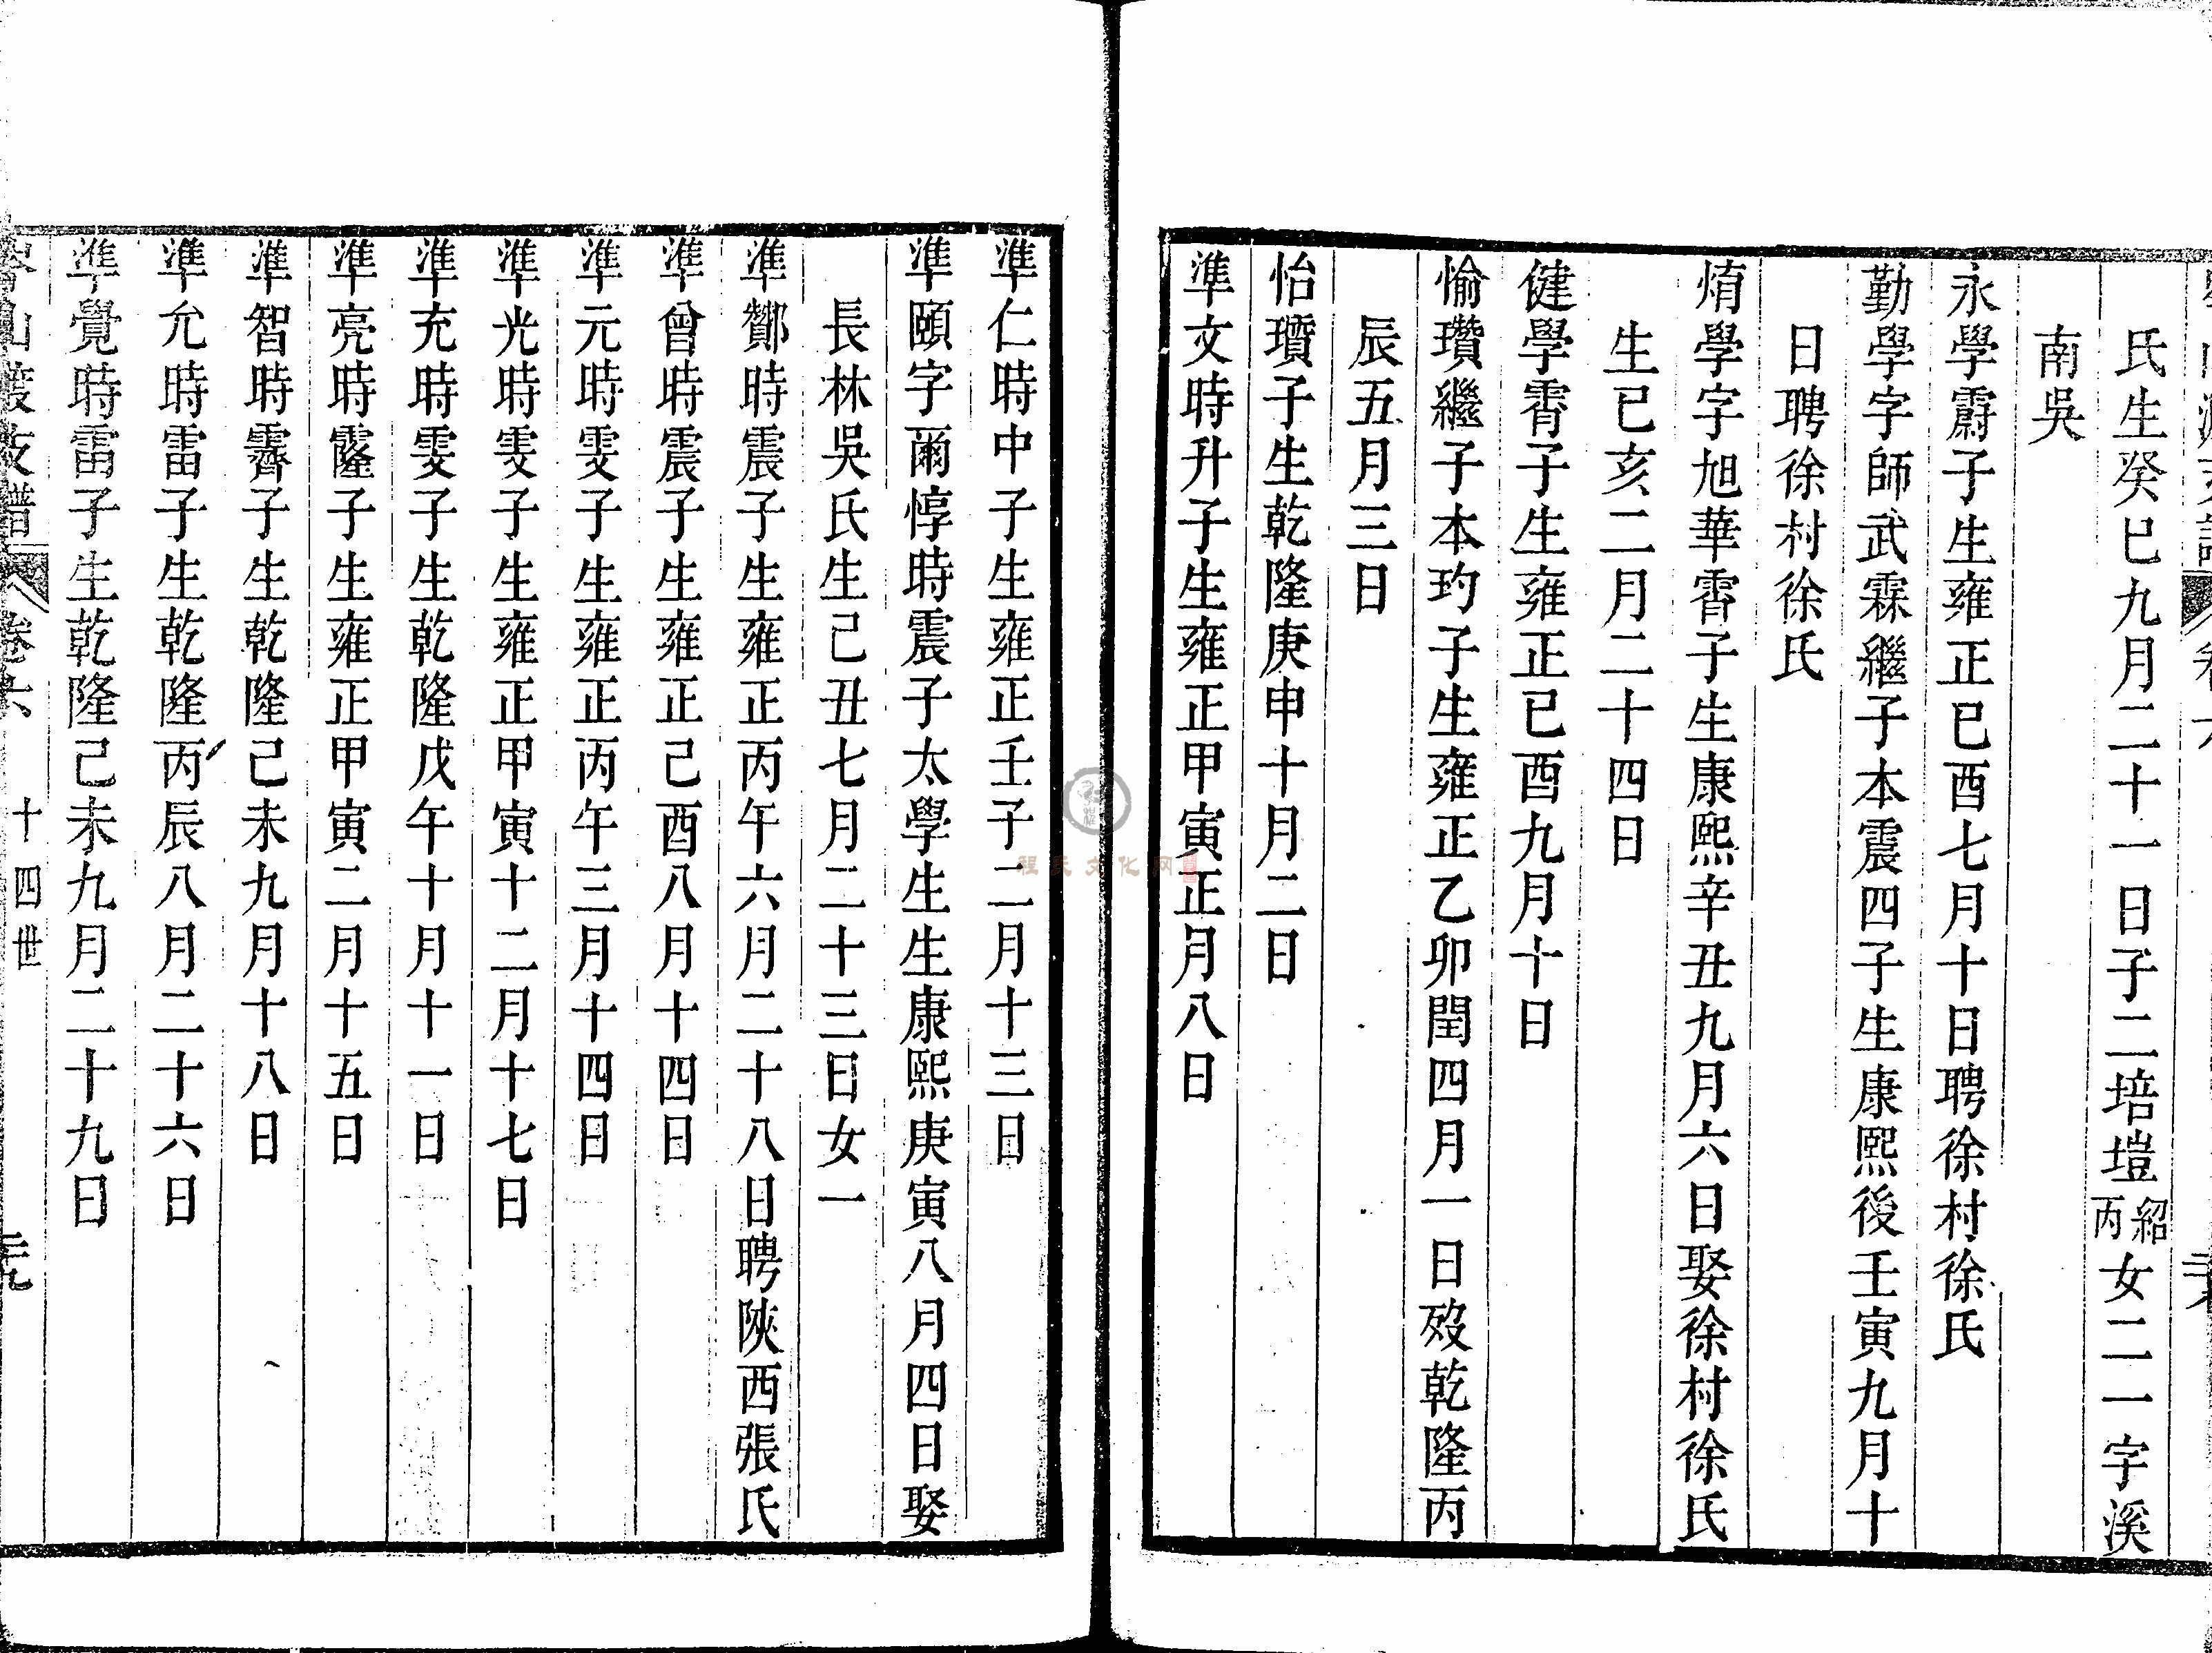 氏生癸巳九月二十一日子二培塏紹丙女二一字溪
南吳
永學霨子生雍正已酉七月十日聘徐村徐氏
勤學字師武霖繼子本震四子生康熙後壬寅九月十
日聘徐村徐氏
焴學字旭華霄子生康熙辛丑九月六日娶徐村徐氏
生已亥二月二十四日
健學霄子生雍正已酉九月十日
愉瓚繼子本玓子生雍正乙卯閏四月一日歿乾隆丙
辰五月三日
怡瓚子生乾隆庚申十月二日
準文時升子生雍正甲寅正月八日
準仁時中子生雍正壬子二月十三日
準頤字爾惇時震子太學生生康熙庚寅八月四日娶
長林吳氏生己丑七月二十三日女一
準酇時震子生雍正丙午六月二十八日聘陝西張氏
準曾時震子生雍正己酉八月十四日
準元時雯子生雍正丙午三月十四日
準光時雯子生雍正甲寅十二月十七日
準充時雯子生乾隆戊午十月十一日
準亮時霳子生雍正甲寅二月十五日
準智時霽子生乾隆己未九月十八日
準允時雷子生乾隆丙辰八月二十六日
準覺時雷子生乾隆己未九月二十九日
卷六 十四世